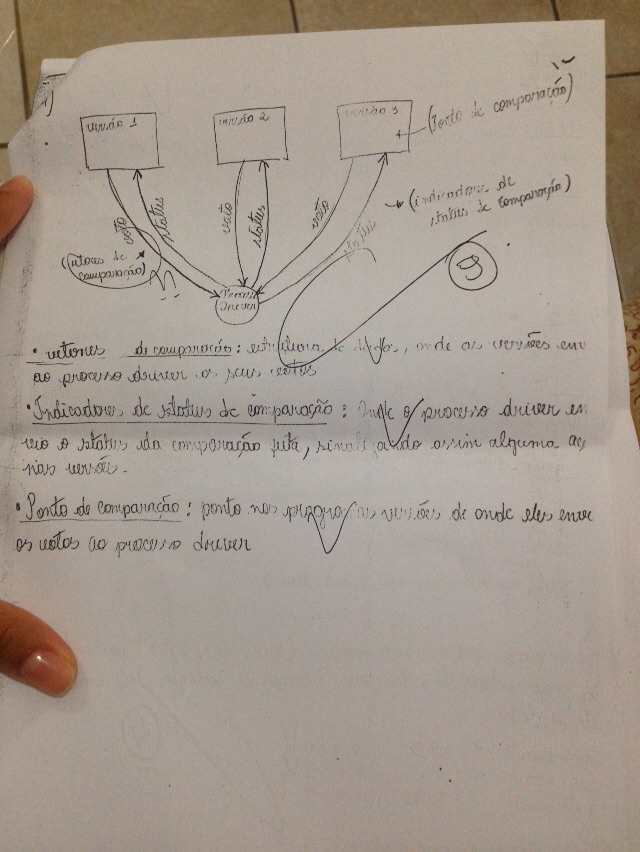 1)
versão 1
versão 2
versão 3
(Ponto de comparação)
voto
status
voto
status
voto
status
(indicadores de
status de comparação)
(vetores de
comparação)
Driver
9
• vetores de comparação: estrutura de dados, onde as versões env
ao processo driver os seus votos
• Indicadores de status de comparação: Onde o processo driver en
via o status da comparação feita, sinalizando assim alguma aç
nas versão.
• Ponto de comparação: ponto nos as versões de onde eles envi
os votos ao processo driver